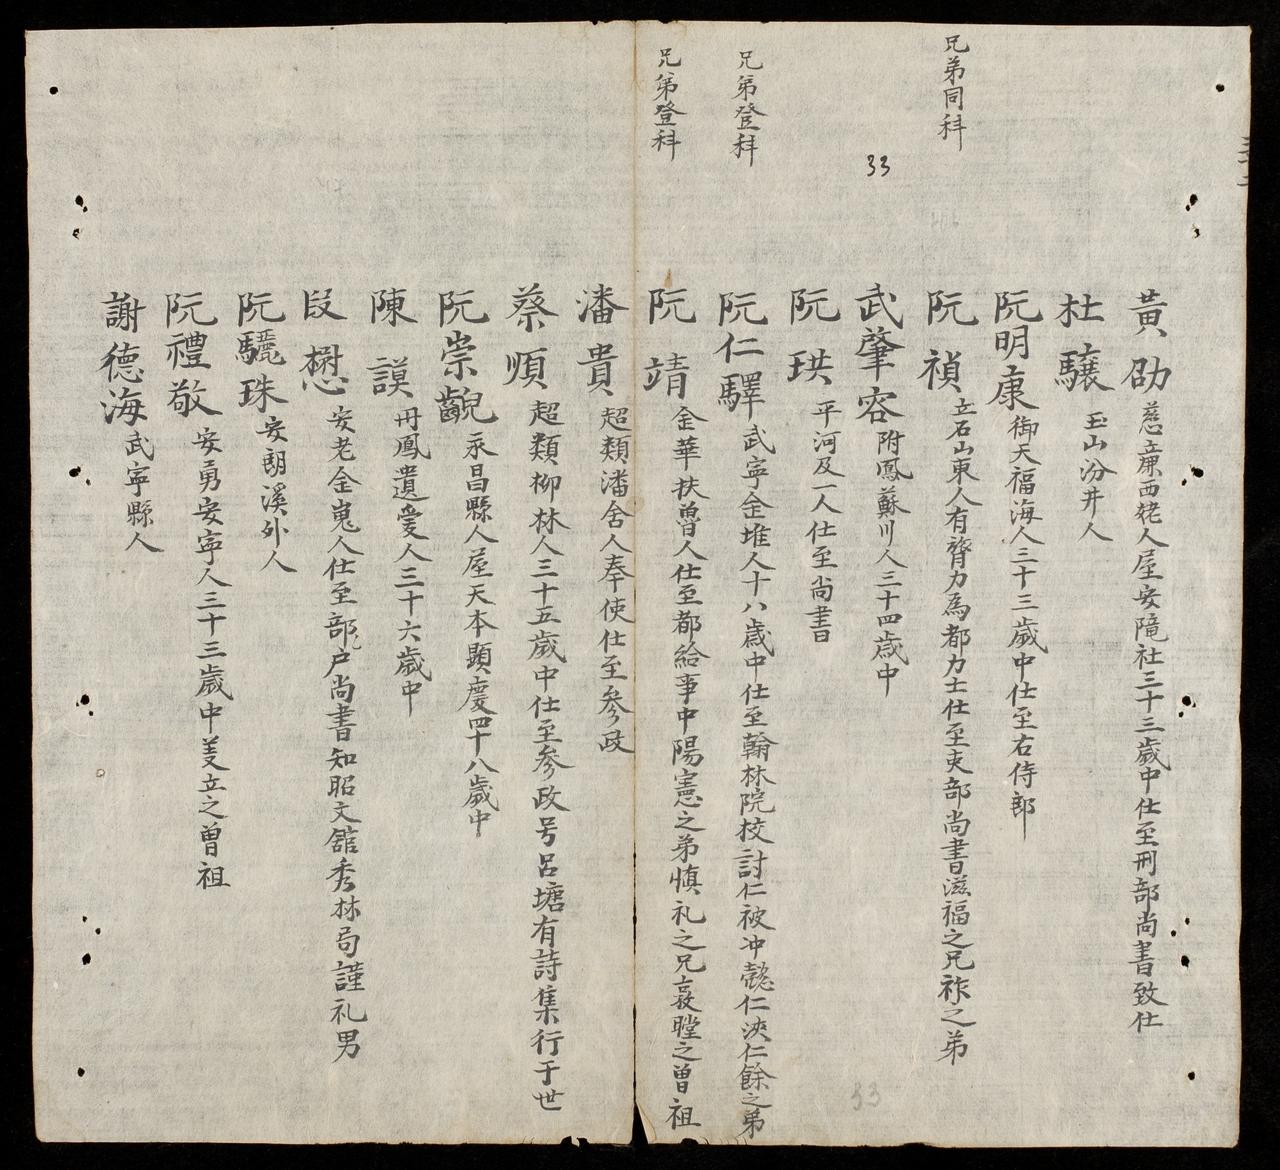 黃劭 慈廉西姥人屋安隴社三十三歲中仕至刑部尚書致仕
杜驤 玉山汾井人
阮明康 御天福海人三十三歲中仕至右侍郎
兄弟同科
阮禎 立石山東人有膂力為都力士仕至吏部尚書滋福之兄祚之弟
33
武肇容 附鳳蘇川人三十四歲中
阮珙 平河及一人仕至尚書
兄弟登科
阮仁驛 武寧金堆人十八歲中仕至翰林院校討仁被冲懿仁浹仁餘之弟
兄弟登科
阮靖 金華扶魯人仕至都給事中陽憲之弟慎礼之兄敦瞠之曾祖
潘貴 超類潘舍人奉使仕至参政
蔡順 超類柳林人三十五歲中仕至参政号呂塘有詩集行于世
阮崇齯 永昌縣人屋天本顯慶四十八歲中
陳謨 丹鳳遺愛人三十六歲中
段懋 安老金嵬人仕至部户尚書知昭文舘秀林局謹礼男
阮驪珠 安朗溪外人
阮禮敬 安勇安寧人三十三歲中美立之曾祖
謝德海 武寧縣人
33